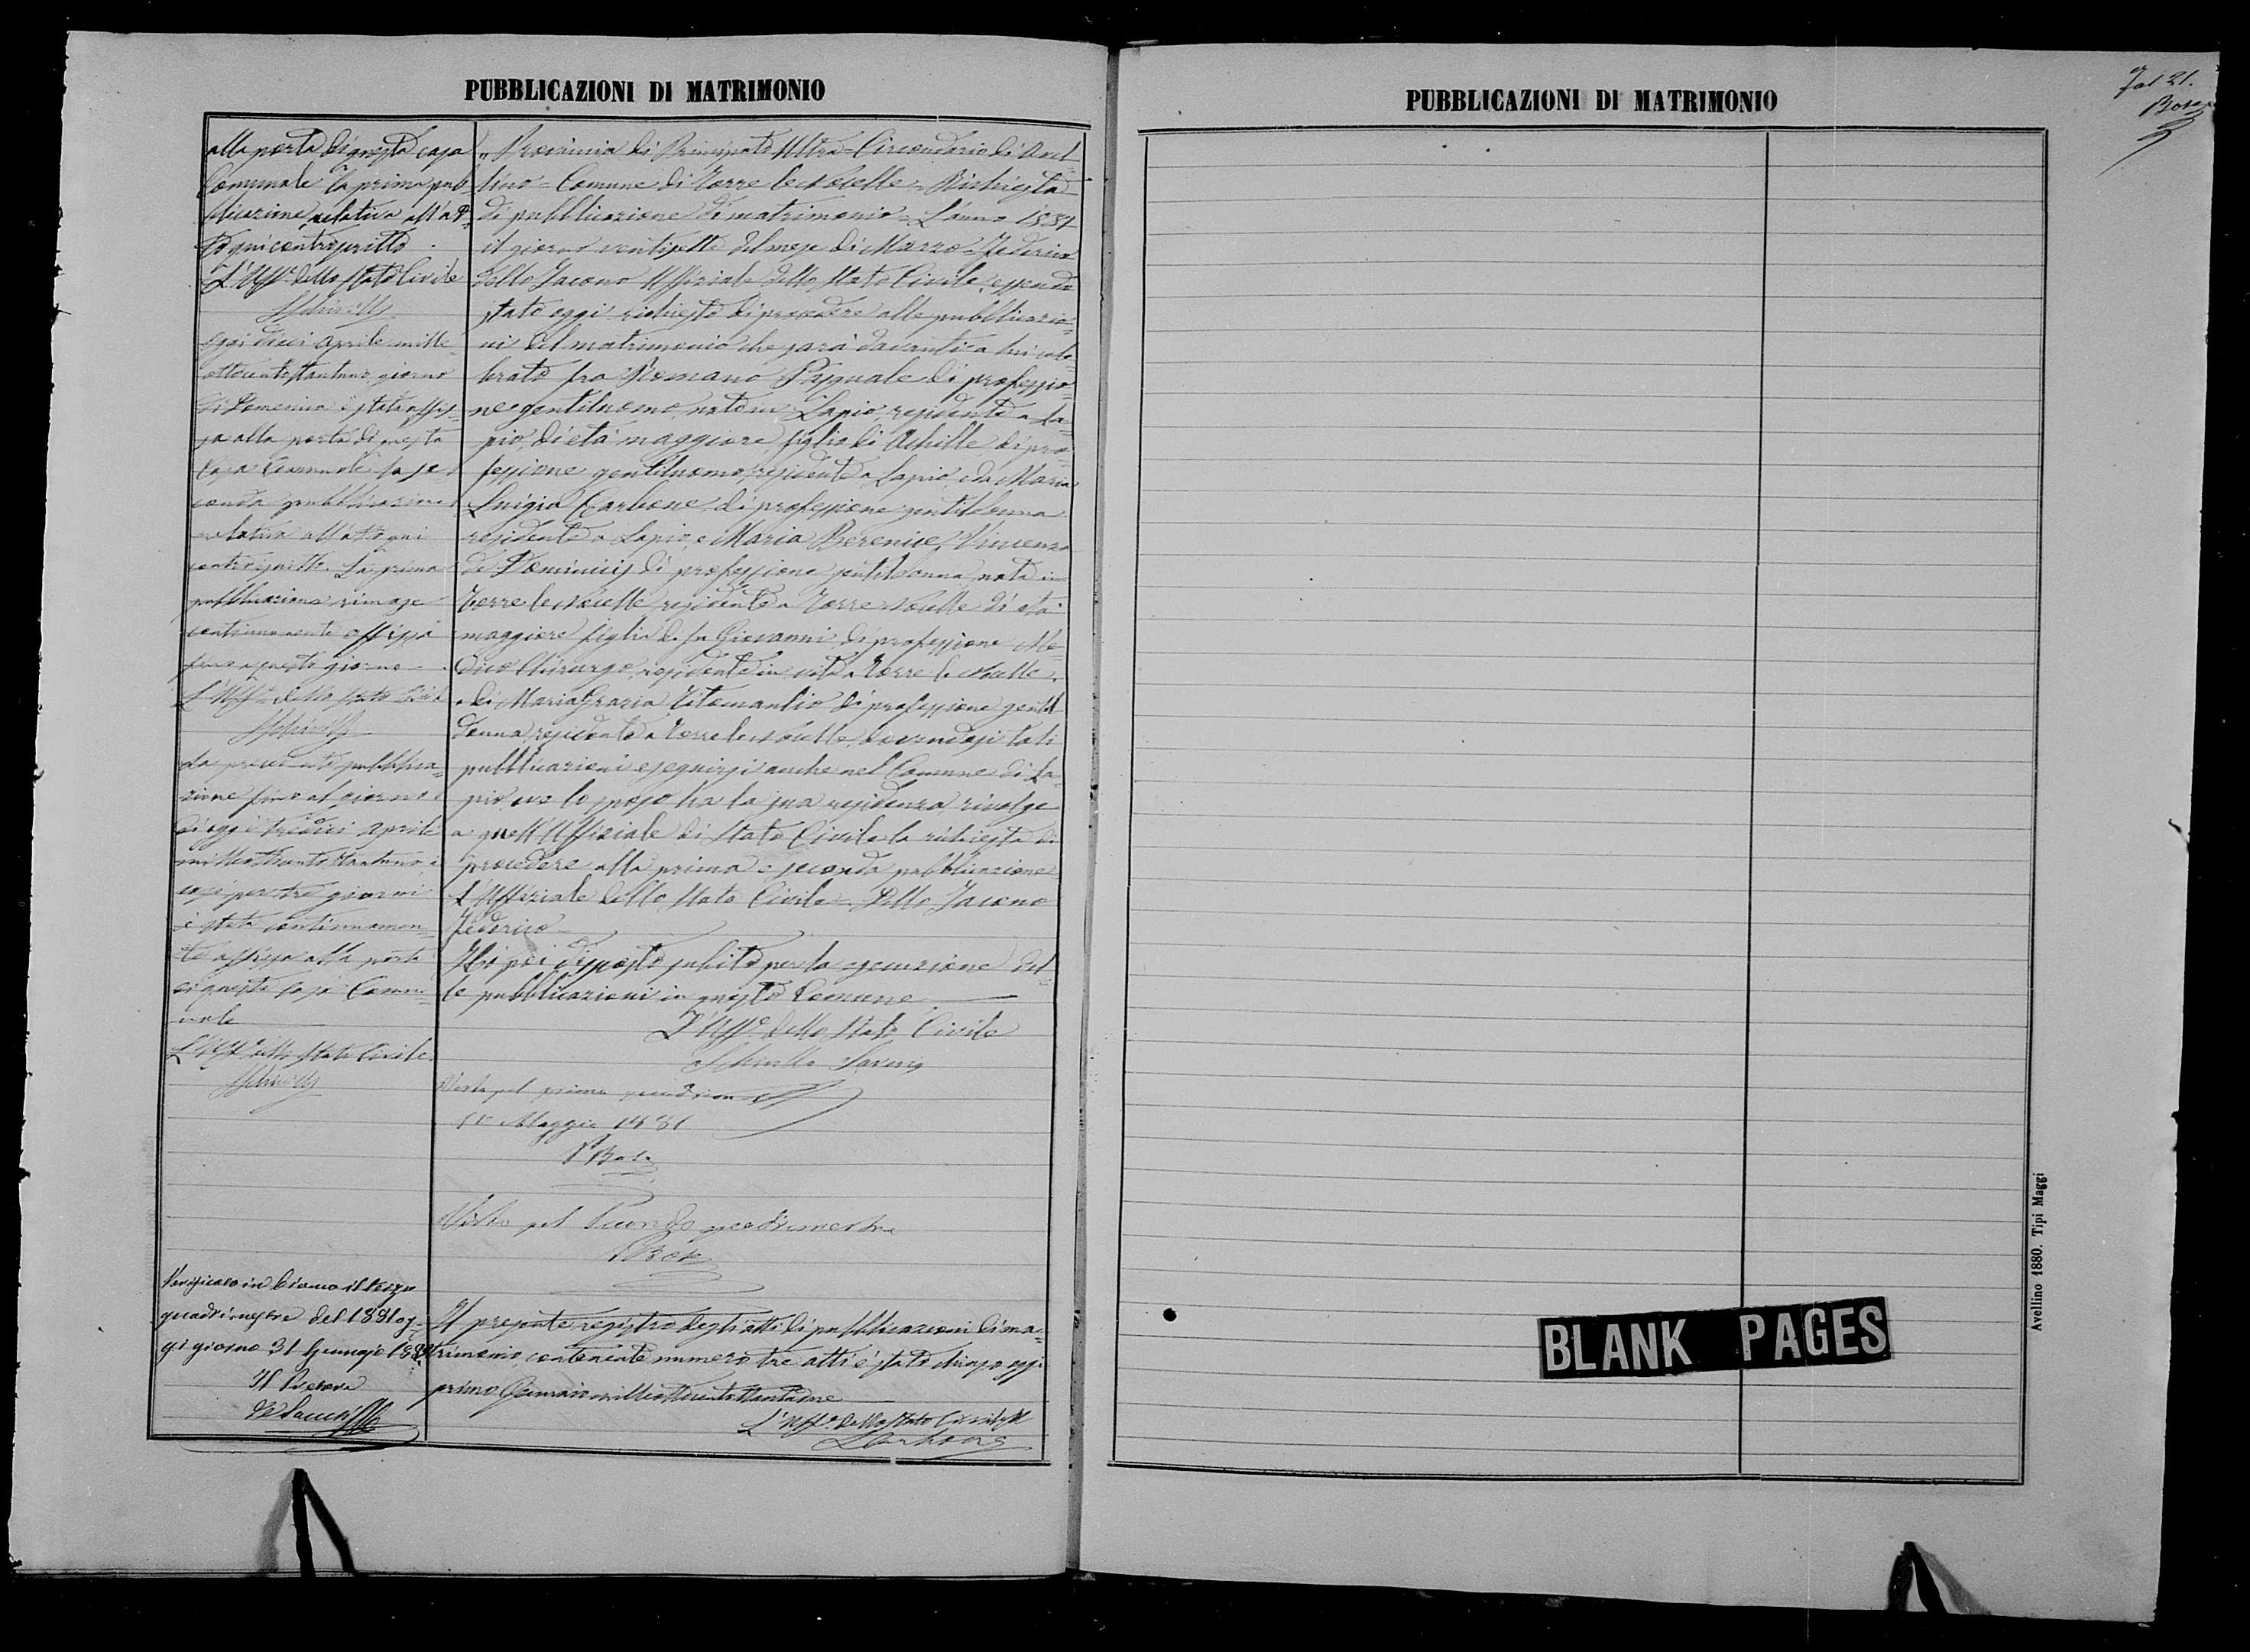 PUBBLICAZIONI DI MATRIMONIO
alla porta di questa casa
Comunale la prima pub
blicazione relativa all'at
to qui controscritto.
L'Uffe dello Stato Civile
Oggi dieci Aprile mille
ottocentottantuno giorno
di Domenica è stata affis
sa alla porta di questa
Casa Comunale la se
conda pubblicazione
relativa all'atto qui
controscritto. La prima
pubblicazione rimase
continuamente affissa
fino a questo giorno
L'Uffe dello Stato Civile
La presente pubblica
zione fino al giorno
di oggi tredici Aprile
milleottocentottantuno, e
così per tre giorni
è stata continuamen
te affissa alla porta
di questa casa Comu
nale
L'Uffe dello Stato Civile
Verificato in bianco il terzo
quadrimestre del 1881 og
gi giorno 31 Gennajo 1882
Il Pretore
„ Provincia di Principato Ultra = Circondario di Avel
lino = Comune di Torre le Nocelle = Richiesta
di pubblicazione di matrimonio = L'anno 1881
il giorno ventisette del mese di Marzo = Federico
dello Jacono Uffiziale dello Stato Civile, essendo
stato oggi richiesto di procedere alle pubblicazio
ni del matrimonio che sarà davanti a lui cele
brato fra Romano Pasquale di professio
ne gentiluomo, nato in Lapio, residente a La
pio, di età maggiore, figlio di Achille, di pro
fessione gentiluomo, residente a Lapio, e da Maria
Luigia Carbone, di professione gentildonna
residente a Lapio, e Maria Berenice, Vincenza
de Dominicis di professione gentildonna, nata in
Torre le Nocelle residente a Torre Nocelle di età
maggiore figlia di fu Giovanni, di professione Me
dico Chirurgo, residente in vita a Torre le Nocelle,
e di Maria Grazia Titomanlio di professione gentil
donna, residente a Torre le Nocelle, dovendosi tali
pubblicazioni eseguirsi anche nel Comune di La
pio, ove lo sposo ha la sua residenza, rivolge
a quell'Uffiziale di Stato Civile la richiesta di
procedere alla prima e seconda pubblicazione
L'Uffiziale dello Stato Civile = Dello Jacono
Federico
Ho poi disposto subito per la esecuzione del
le pubblicazioni in questo Comune
L'Uffe dello Stato Civile
Visto pel primo quadrimestre
Maggio 1881
Visto pel Secondo quadrimestre
Il presente registro degli atti di pubblicazioni di ma
trimonio contenente numero tre atti è stato chiuso oggi
primo Gennaio milleottocentottantadue
L'Uffe dello Stato Civile
PUBBLICAZIONI DI MATRIMONIO
Avellino 1880. Tipi Maggi
BLANK PAGES